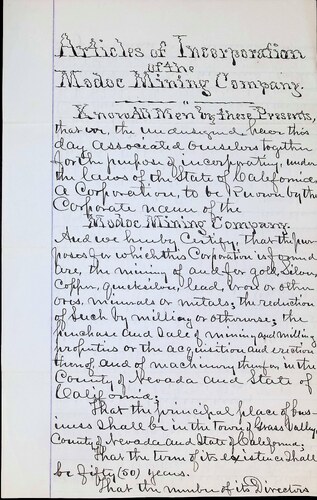 Articles of Incorporation
of the
Modoc Mining Company.
Know All Men by these Presents,
that we, the undersigned have this
day associated ourselves together
for the purpose of incorporating, under
the laws of the State of California
a Corporation, to be known by the
Corporate name of the
Modoc Mining Company.
And we hereby Certify, that the pur-
poses for which this Corporation is formed
are, the mining of and for gold, silver,
copper, quicksilver, lead, iron or other
ores, minerals or metals; the reduction
of such by milling or otherwise; the
purchase and sale of mining and milling
properties or the acquisition and erection
thereof, and of machinery therefor, in the
County of Nevada and State of
California;
That the principal place of bus-
iness shall be in the Town of Grass Valley,
County of Nevada and State of California;
That the term of its existence shall
be fifty (50) years.
That the number of its Directors